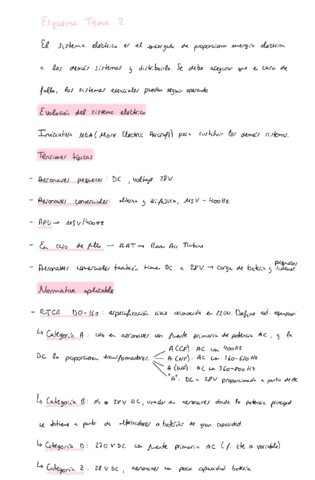 Esquema Tema 2
El sistema eléctrico es el encargado de proporcionar energía eléctrica
a los demás sistemas y distribuirla. Se debe asegurar que en caso de
fallo, los sistemas esenciales puedan seguir operando
Evolución del sistema eléctrico
Iniciativa MEA (More Electric Aircraft) para sustituir los demás sistemas.
Tensiones típicas
- Aeronaves pequeñas: DC, voltaje 28V
- Aeronaves comerciales: alterna y trifásica, 115V - 400Hz
- APU → 115V/400Hz
- En caso de fallo → RAT → Ram Air Turbine
- Aeronaves comerciales también tienen DC a 28V → carga de batería y pequeños sistemas
Normativa aplicable
- RTCA DO-160: especificación civil reconocida en EEUU. Define
↳ Categoría A: uso en aeronaves con fuente primaria de potencia AC, y la
DC la proporcionan transformadores.
A(CF): AC con 400Hz
A(NF): AC con 360-650Hz
A(WF): AC con 360-800Hz
"A": DC = 28V proporcionada a partir de AC
↳ Categoría B: 28V DC, usados en aeronaves donde la potencia principal
se obtiene a partir de alternadores o baterías de gran capacidad.
↳ Categoría D: 270V DC con fuente primaria AC (f. cte o variable)
↳ Categoría Z: 28V DC, aeronaves con poca capacidad batería